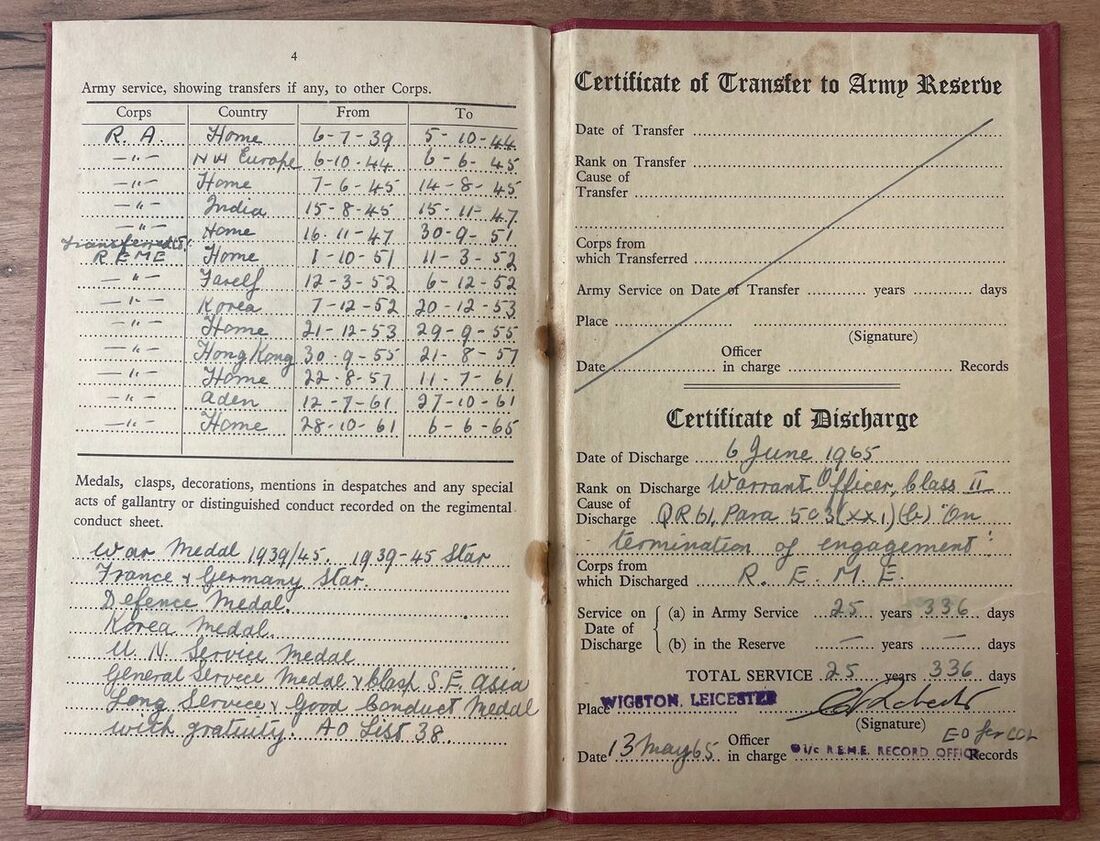 4
Army service, showing transfers if any, to other Corps.
Corps Country From To
R. A. Home 6-7-39 5-10-44
—"— N W Europe 6-10-44 6-6-45
—"— Home 7-6-45 14-8-45
—"— India 15-8-45 15-11-47
—"— Home 16.11-47 30-9-51
Transferred to:
R E M E Home 1-10-51 11-3-52
—"— Farelf 12-3-52 6-12-52
—"— Korea 7-12-52 20-12-53
—"— Home 21-12-53 29-9-55
—"— Hong Kong 30.9-55 21-8-57
—"— Home 22.8-57 11-7-61
—"— Aden 12-7-61 27-10-61
—"— Home 28-10-61 6-6-65
Medals, clasps, decorations, mentions in despatches and any special
acts of gallantry or distinguished conduct recorded on the regimental
conduct sheet.
War Medal 1939/45. 1939-45 Star
France & Germany Star.
Defence Medal.
Korea Medal.
U. N. Service Medal
General Service Medal & Clasp S. E. Asia
Long Service & Good Conduct Medal
with gratuity. AO List 38.
Certificate of Transfer to Army Reserve
Date of Transfer
Rank on Transfer
Cause of
Transfer
Corps from
which Transferred
Army Service on Date of Transfer years days
Place
(Signature)
Officer
Date in charge Records
Certificate of Discharge
Date of Discharge 6 June 1965
Rank on Discharge Warrant Officer, Class II
Cause of
Discharge QR 61, Para 503(xxi)(b) "On
termination of engagement".
Corps from
which Discharged R. E. M. E.
Service on (a) in Army Service 25 years 336 days
Date of
Discharge (b) in the Reserve — years — days
TOTAL SERVICE 25 years 336 days
Place WIGSTON, LEICESTER
(Signature)
EO for COL
Officer
Date 13 May 65 in charge i/c R.E.M.E. RECORD OFFICE Records